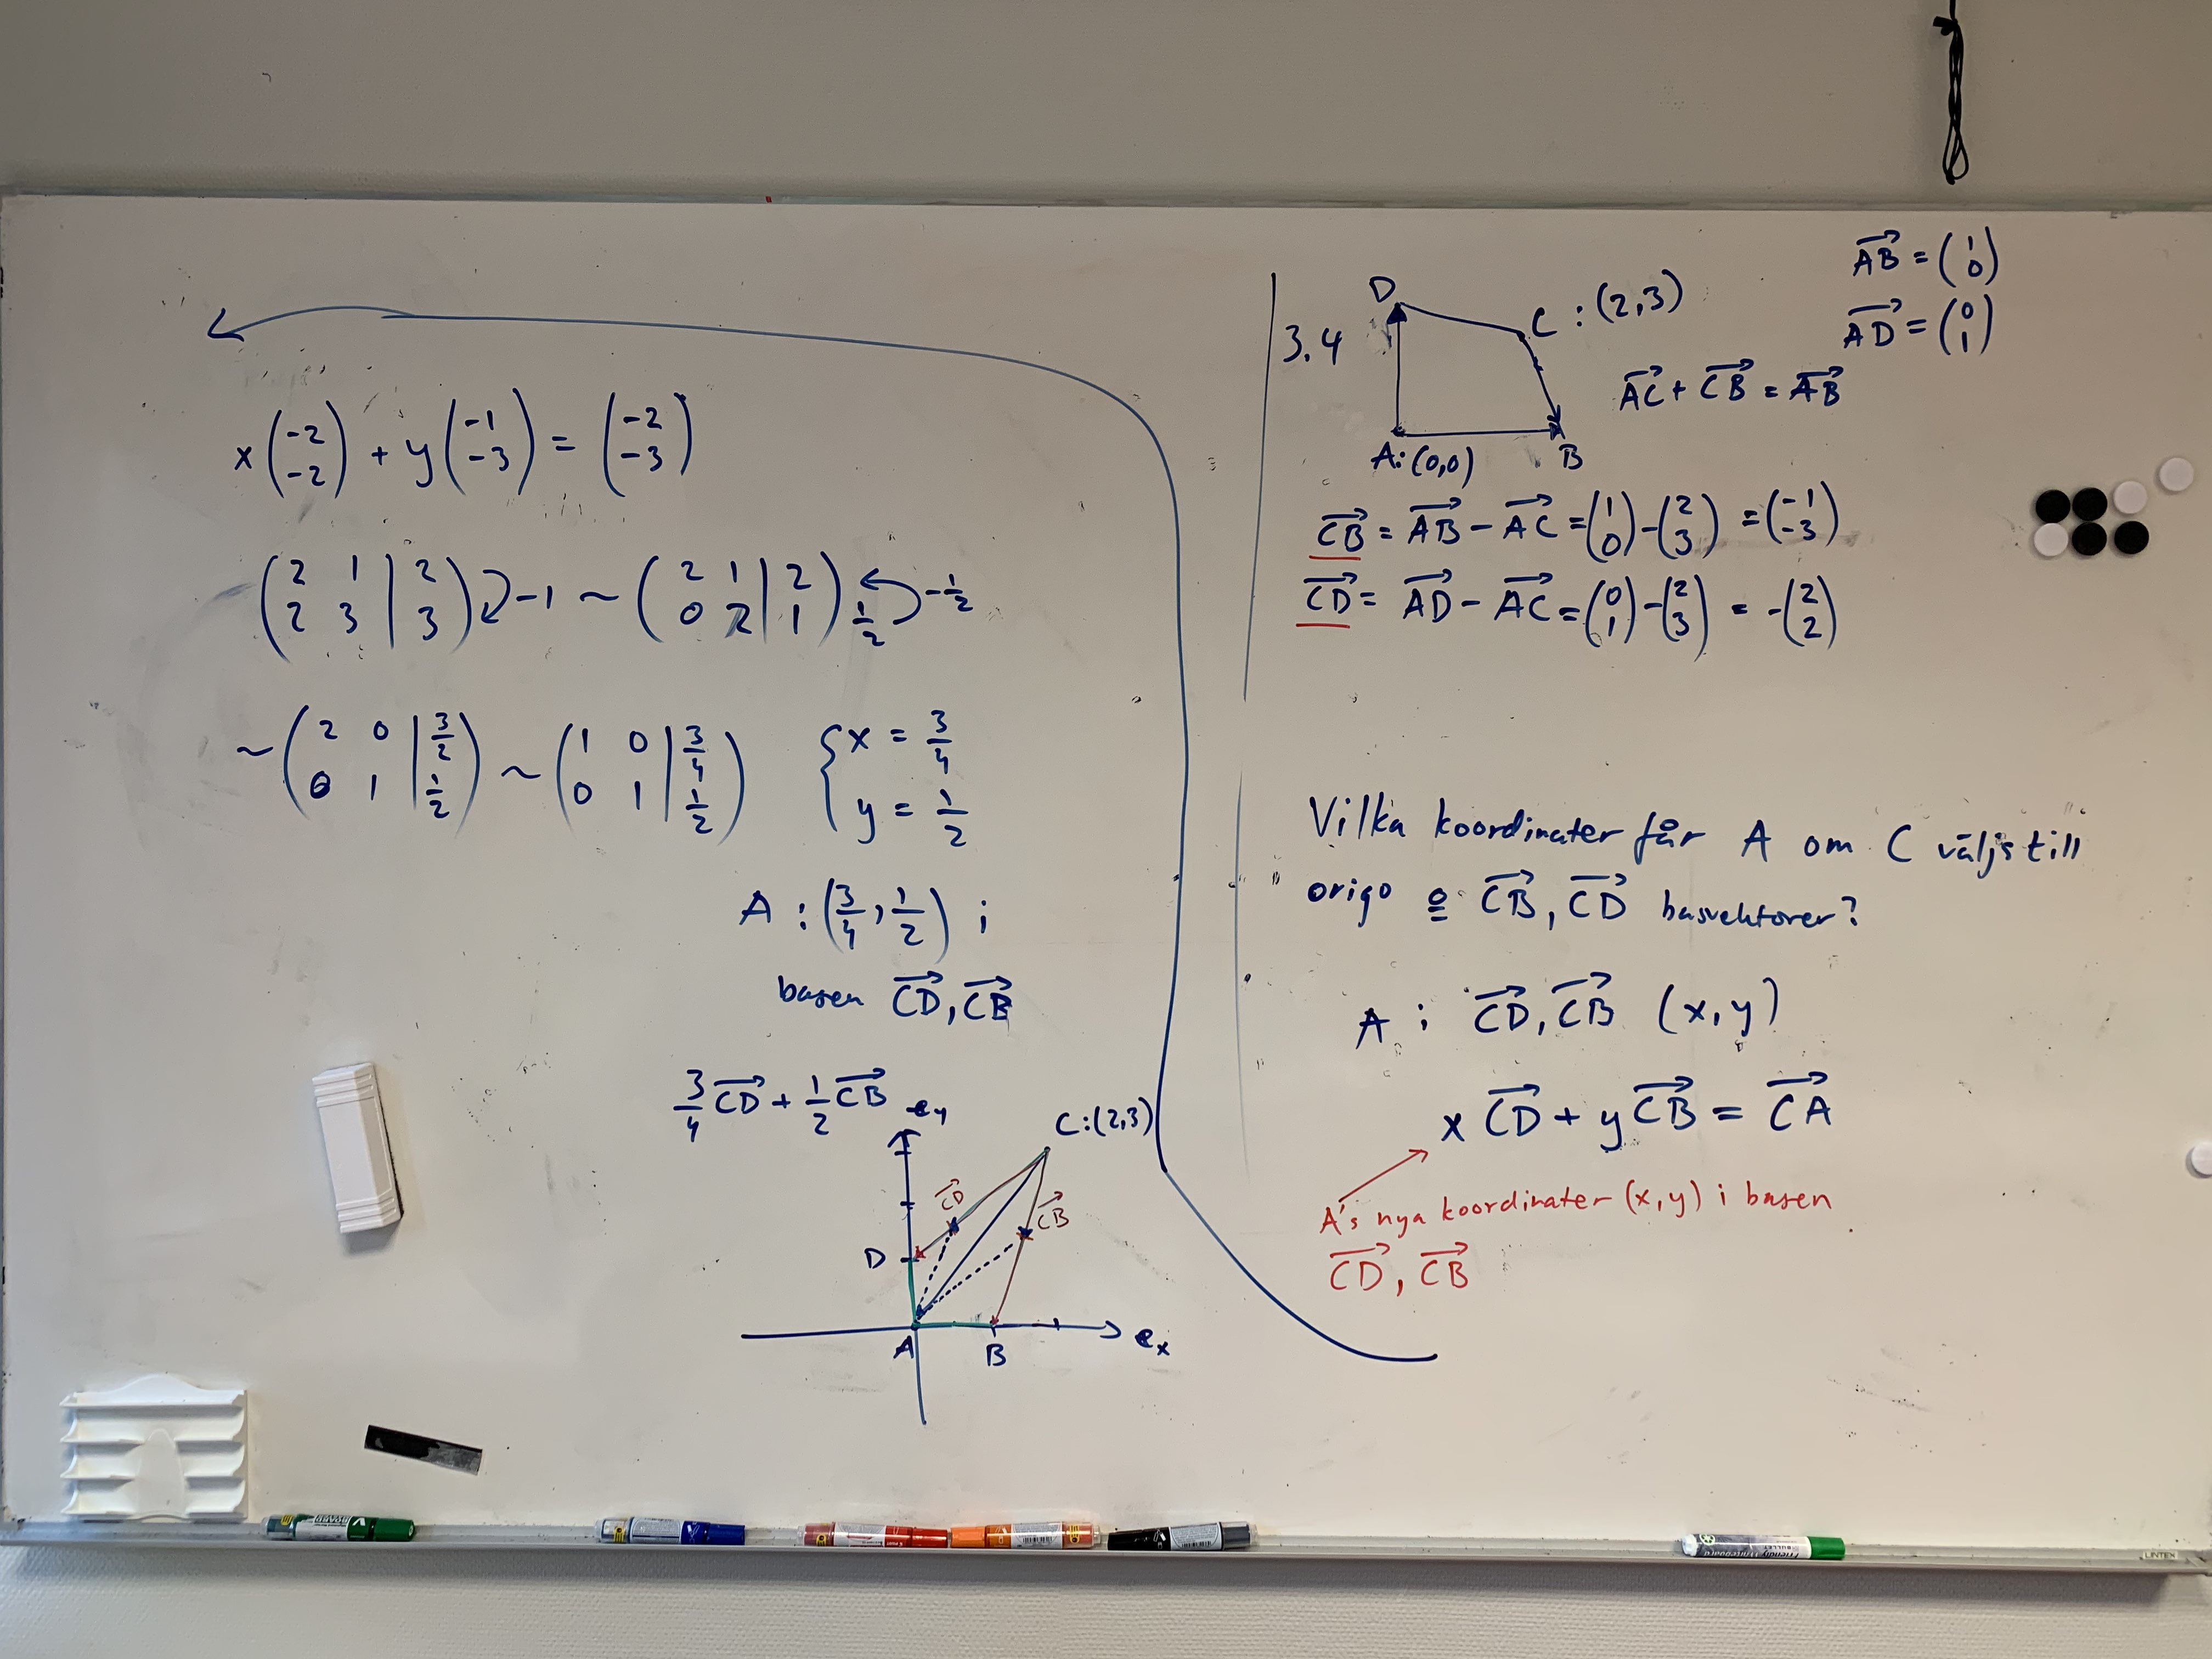 3.4
D
C : (2,3)
A: (0,0)
B
\overrightarrow{AB} = \begin{pmatrix} 1 \\ 0 \end{pmatrix}
\overrightarrow{AD} = \begin{pmatrix} 0 \\ 1 \end{pmatrix}
\overrightarrow{AC} + \overrightarrow{CB} = \overrightarrow{AB}
\overrightarrow{CB} = \overrightarrow{AB} - \overrightarrow{AC} = \begin{pmatrix} 1 \\ 0 \end{pmatrix} - \begin{pmatrix} 2 \\ 3 \end{pmatrix} = \begin{pmatrix} -1 \\ -3 \end{pmatrix}
\overrightarrow{CD} = \overrightarrow{AD} - \overrightarrow{AC} = \begin{pmatrix} 0 \\ 1 \end{pmatrix} - \begin{pmatrix} 2 \\ 3 \end{pmatrix} = -\begin{pmatrix} 2 \\ 2 \end{pmatrix}
Vilka koordinater får A om C väljs till
origo o \overrightarrow{CB}, \overrightarrow{CD} basvektorer?
A i \overrightarrow{CD}, \overrightarrow{CB} (x, y)
x \overrightarrow{CD} + y \overrightarrow{CB} = \overrightarrow{CA}
A's nya koordinater (x, y) i basen
\overrightarrow{CD}, \overrightarrow{CB}
x \begin{pmatrix} -2 \\ -2 \end{pmatrix} + y \begin{pmatrix} -1 \\ -3 \end{pmatrix} = \begin{pmatrix} -2 \\ -3 \end{pmatrix}
\left(\begin{array}{cc|c} 2 & 1 & 2 \\ 2 & 3 & 3 \end{array}\right) -1 \sim \left(\begin{array}{cc|c} 2 & 1 & 2 \\ 0 & 2 & 1 \end{array}\right) \frac{1}{2} -\frac{1}{2}
\sim \left(\begin{array}{cc|c} 2 & 0 & \frac{3}{2} \\ 0 & 1 & \frac{1}{2} \end{array}\right) \sim \left(\begin{array}{cc|c} 1 & 0 & \frac{3}{4} \\ 0 & 1 & \frac{1}{2} \end{array}\right) \begin{cases} x = \frac{3}{4} \\ y = \frac{1}{2} \end{cases}
A : \left(\frac{3}{4}, \frac{1}{2}\right) i
basen \overrightarrow{CD}, \overrightarrow{CB}
\frac{3}{4} \overrightarrow{CD} + \frac{1}{2} \overrightarrow{CB}
e_y
C:(2,3)
\overrightarrow{CD}
\overrightarrow{CB}
D
A
B
e_x
LINTEX